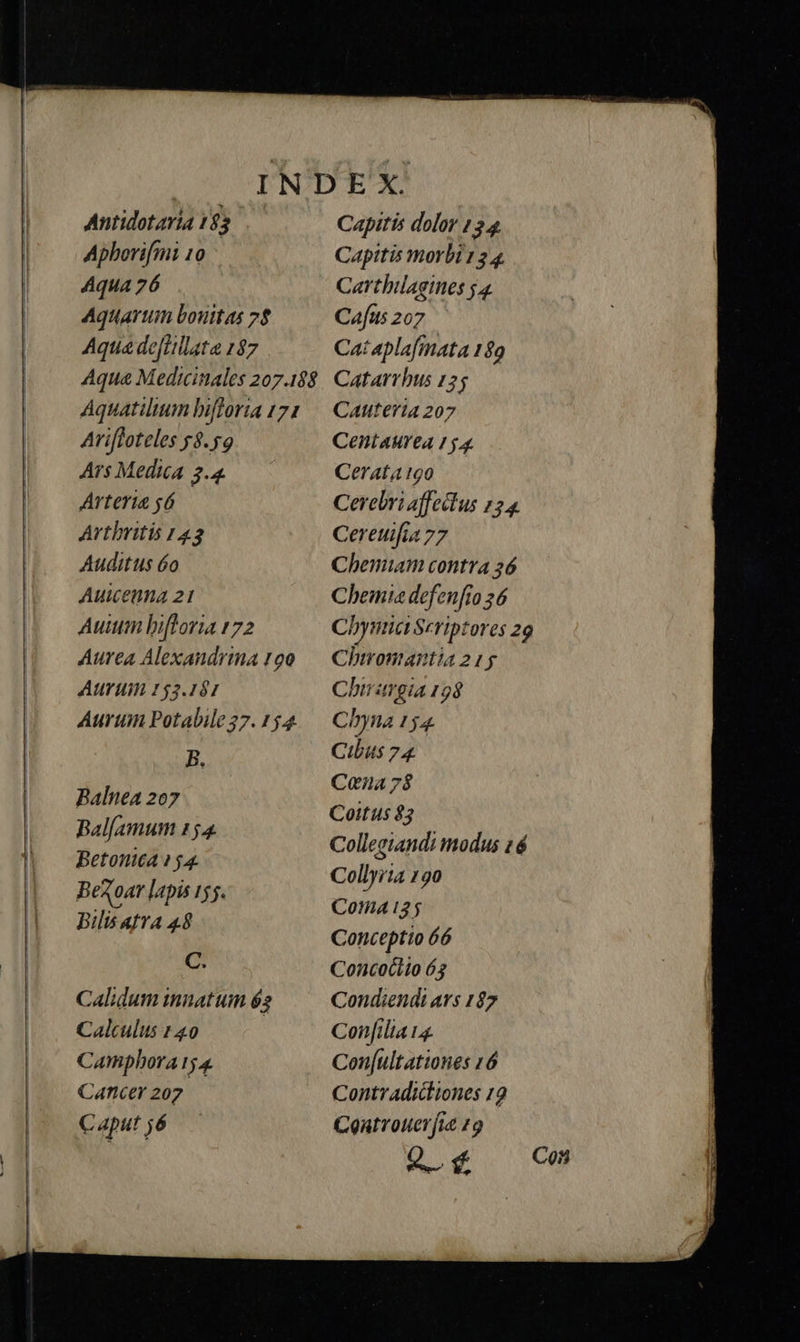 INDEX.
Antidotaria 183
Aphoriſmi 10
Aqua 76
Aquarum bonitas 78
Aquæ deſtillatæ 187
Aquæ Medicinales 207.188
Aquatilium hiſtoria 171
Ariſtoteles 58.59
Ars Medica 3.4
Arteriæ 56
Arthritis 143
Auditus 60
Auicenna 21
Auium hiſtoria 172
Aurea Alexandrina 190
Aurum 153.181
Aurum Potabile 37. 154
B.
Balnea 207
Balſamum 154
Betonica 154
Bezoar lapis 155.
Bilis atra 48
C.
Calidum innatum 63
Calculus 140
Camphora 154
Cancer 207
Caput 56
Capitis dolor 134
Capitis morbi 134
Carthilagines 54
Caſus 207
Cataplaſmata 189
Catarrhus 135
Cauteria 207
Centaurea 154
Cerata 190
Cerebri affectus 134
Cereuiſia 77
Chemiam contra 36
Chemiæ defenſio 36
Chymici Scriptores 29
Chiromantia 215
Chirurgia 198
Chyna 154
Cibus 74
Cœna 78
Coitus 83
Collegiandi modus 16
Collyria 190
Coma 135
Conceptio 66
Concoctio 63
Condiendi ars 187
Conſilia 14
Conſultationes 16
Contradictiones 19
Controuerſiæ 19
Q 4 Con